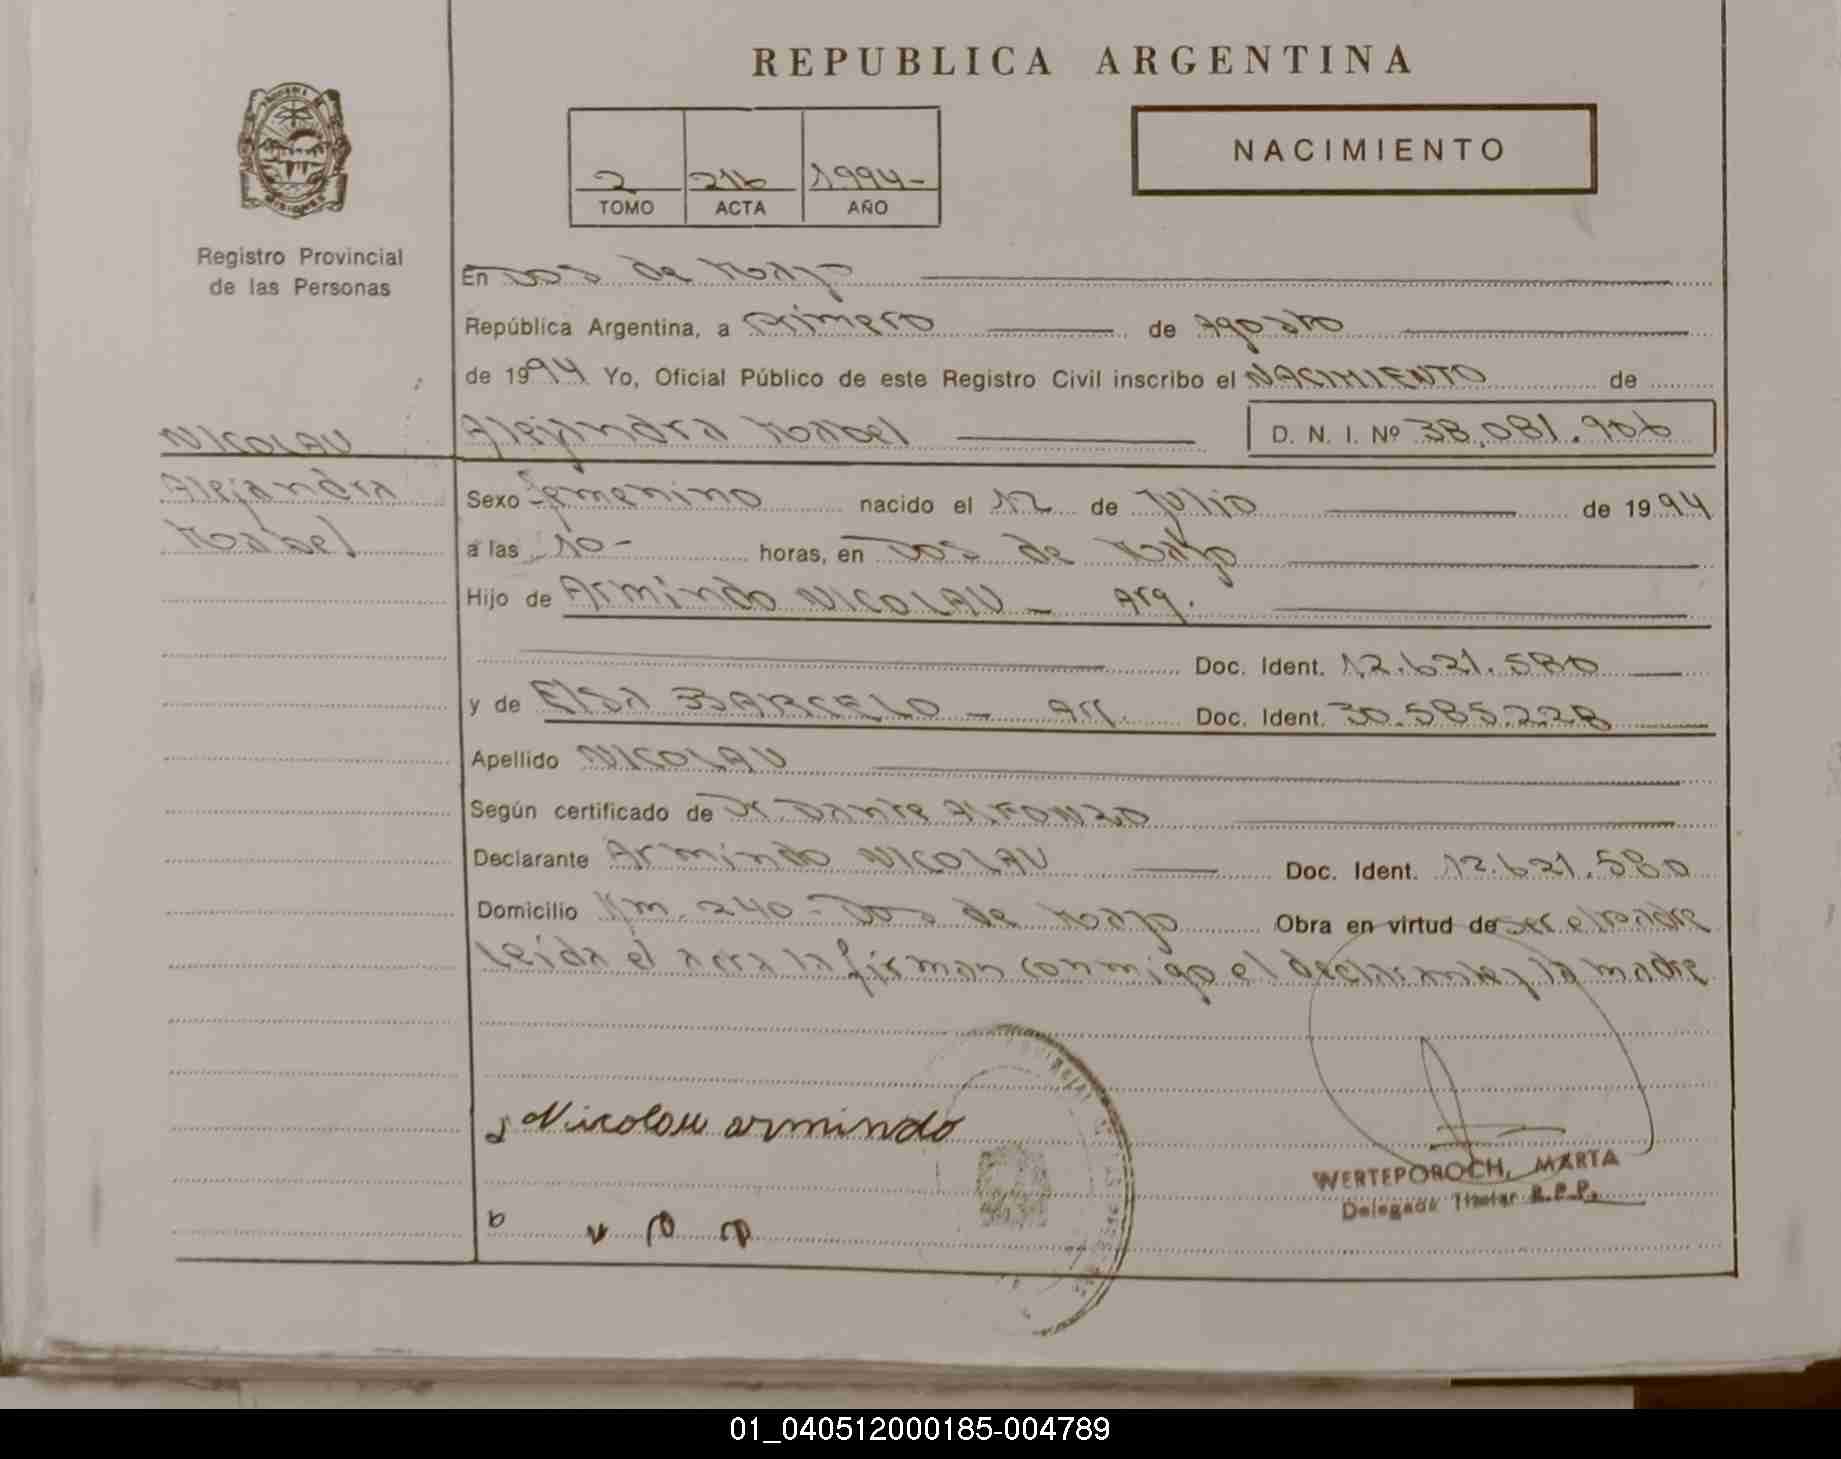 REPUBLICA ARGENTINA
2 216 1994-
TOMO ACTA AÑO
NACIMIENTO
Registro Provincial
de las Personas
En Dos de Mayo
República Argentina, a primero de Agosto
de 1994 Yo, Oficial Público de este Registro Civil inscribo el NACIMIENTO de
Alejandra Mabel D. N. I. Nº 38.081.906
NICOLAU
Alejandra
Mabel
Sexo femenino nacido el 12 de Julio de 1994
a las 10- horas, en Dos de Mayo
Hijo de Armindo NICOLAU - Arg.
Doc. Ident. 12.621.580
y de Elsa BARCELO - Arg. Doc. Ident. 30.585.228
Apellido NICOLAU
Según certificado de Dr. Dante ALFONZO
Declarante Armindo NICOLAU Doc. Ident. 12.621.580
Domicilio Km. 240 - Dos de Mayo Obra en virtud de ser el padre
Leida el acta la firman conmigo el declarante y la madre
a Nicolau armindo
WERTEPOROCH, MARTA
Delegada Titular R.P.P.
b
01_040512000185-004789